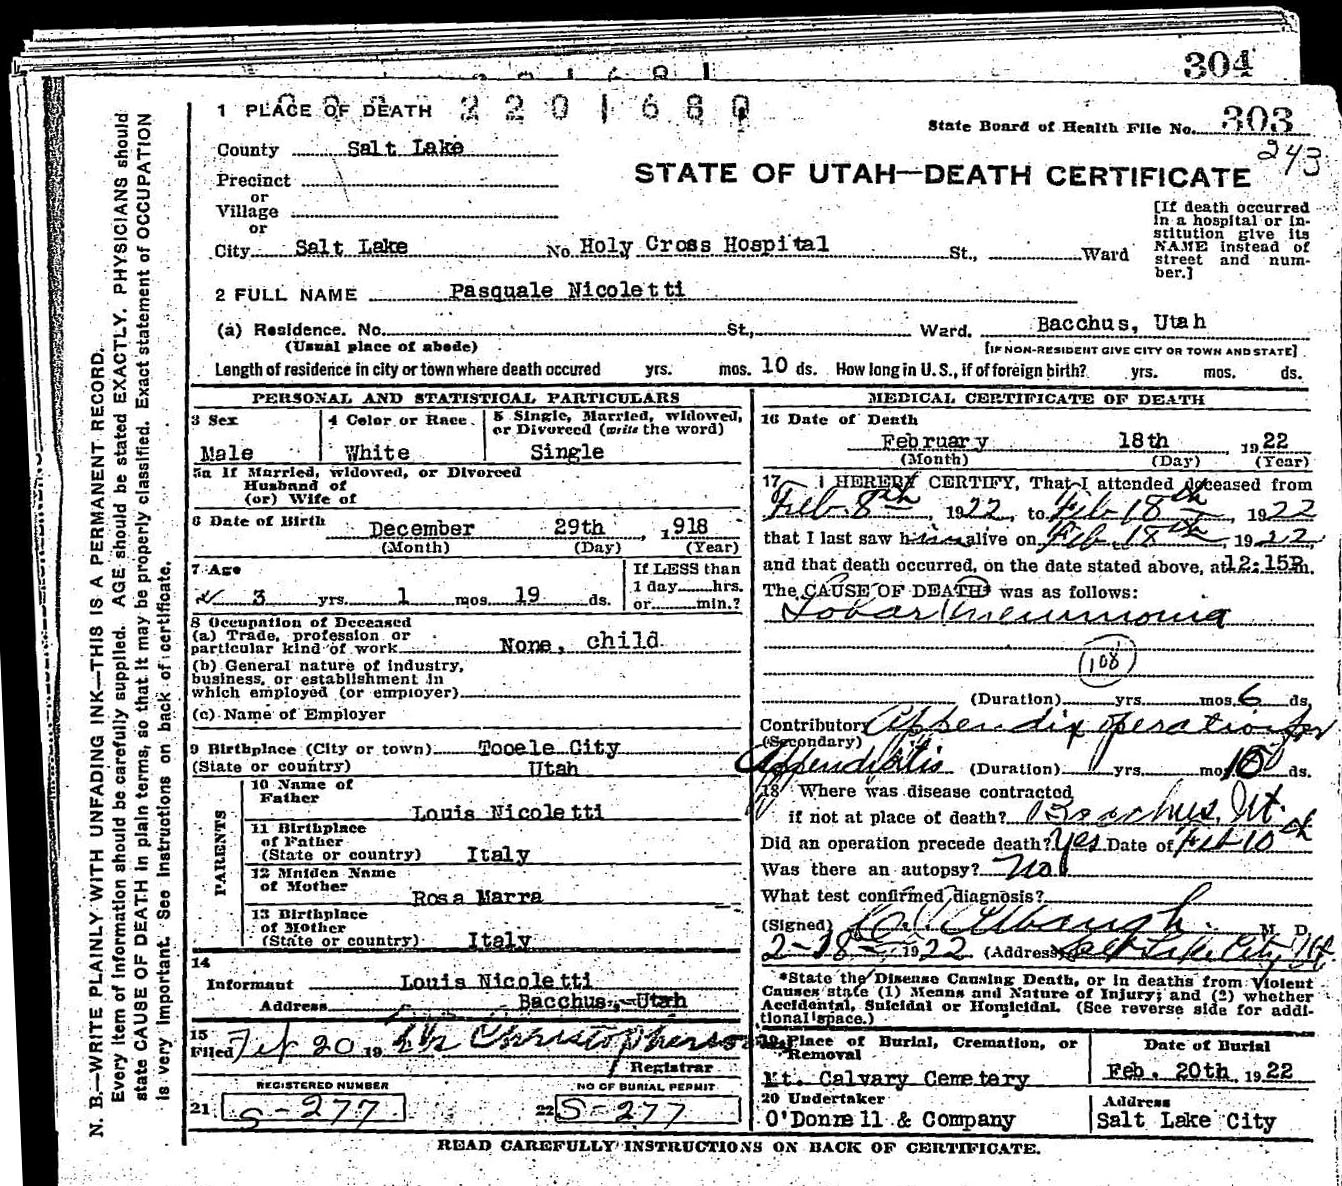 304
1 PLACE OF DEATH 2201680
State Board of Health File No. 303
243
County Salt Lake
STATE OF UTAH—DEATH CERTIFICATE
Precinct
or
Village
or
City Salt Lake No. Holy Cross Hospital St., Ward
[If death occurred
in a hospital or in-
stitution give its
NAME instead of
street and num-
ber.]
2 FULL NAME Pasquale Nicoletti
(a) Residence. No. St., Ward. Bacchus, Utah
(Usual place of abode) [IF NON-RESIDENT GIVE CITY OR TOWN AND STATE]
Length of residence in city or town where death occured yrs. mos. 10 ds. How long in U. S., if of foreign birth? yrs. mos. ds.
PERSONAL AND STATISTICAL PARTICULARS
3 Sex
Male
4 Color or Race
White
5 Single, Married, widowed,
or Divorced (write the word)
Single
5a If Married, widowed, or Divorced
Husband of
(or) Wife of
6 Date of Birth December 29th, 1918
(Month) (Day) (Year)
7 Age
3 yrs. 1 mos. 19 ds.
If LESS than
1 day hrs.
or min.?
8 Occupation of Deceased
(a) Trade, profession or
particular kind of work None, child
(b) General nature of industry,
business, or establishment in
which employed (or employer)
(c) Name of Employer
9 Birthplace (City or town) Tooele City
(State or country) Utah
PARENTS
10 Name of
Father
Louis Nicoletti
11 Birthplace
of Father
(State or country) Italy
12 Maiden Name
of Mother
Rosa Marra
13 Birthplace
of Mother
(State or country) Italy
14
Informant Louis Nicoletti
Address Bacchus, Utah
15
Filed Feb 20 19 Christopherson
Registrar
REGISTERED NUMBER
21 S-277
NO OF BURIAL PERMIT
22 S-277
MEDICAL CERTIFICATE OF DEATH
16 Date of Death
February 18th 1922
(Month) (Day) (Year)
17 I HEREBY CERTIFY, That I attended deceased from
Feb. 8th, 1922, to Feb 18th, 1922
that I last saw him alive on Feb. 18th, 1922,
and that death occurred, on the date stated above, at 12:15P.m.
The CAUSE OF DEATH was as follows:
Lobar Pneumonia
108
(Duration) yrs. mos. 6 ds.
Contributory Appendix operation for
(Secondary)
Appendicitis (Duration) yrs. mos. 10 ds.
18 Where was disease contracted
if not at place of death? Bacchus, Ut.
Did an operation precede death? Yes Date of Feb 10th
Was there an autopsy? No
What test confirmed diagnosis?
(Signed) M. D.
2-18, 1922 (Address) Salt Lake City, Ut.
*State the Disease Causing Death, or in deaths from Violent
Causes state (1) Means and Nature of Injury; and (2) whether
Accidental, Suicidal or Homicidal. (See reverse side for addi-
tional space.)
19 Place of Burial, Cremation, or
Removal
Mt. Calvary Cemetery
Date of Burial
Feb. 20th, 1922
20 Undertaker
O'Donnell & Company
Address
Salt Lake City
READ CAREFULLY INSTRUCTIONS ON BACK OF CERTIFICATE.
N. B.—WRITE PLAINLY WITH UNFADING INK—THIS IS A PERMANENT RECORD.
Every item of information should be carefully supplied. AGE should be stated EXACTLY. PHYSICIANS should
state CAUSE OF DEATH in plain terms, so that it may be properly classified. Exact statement of OCCUPATION
is very important. See Instructions on back of certificate.